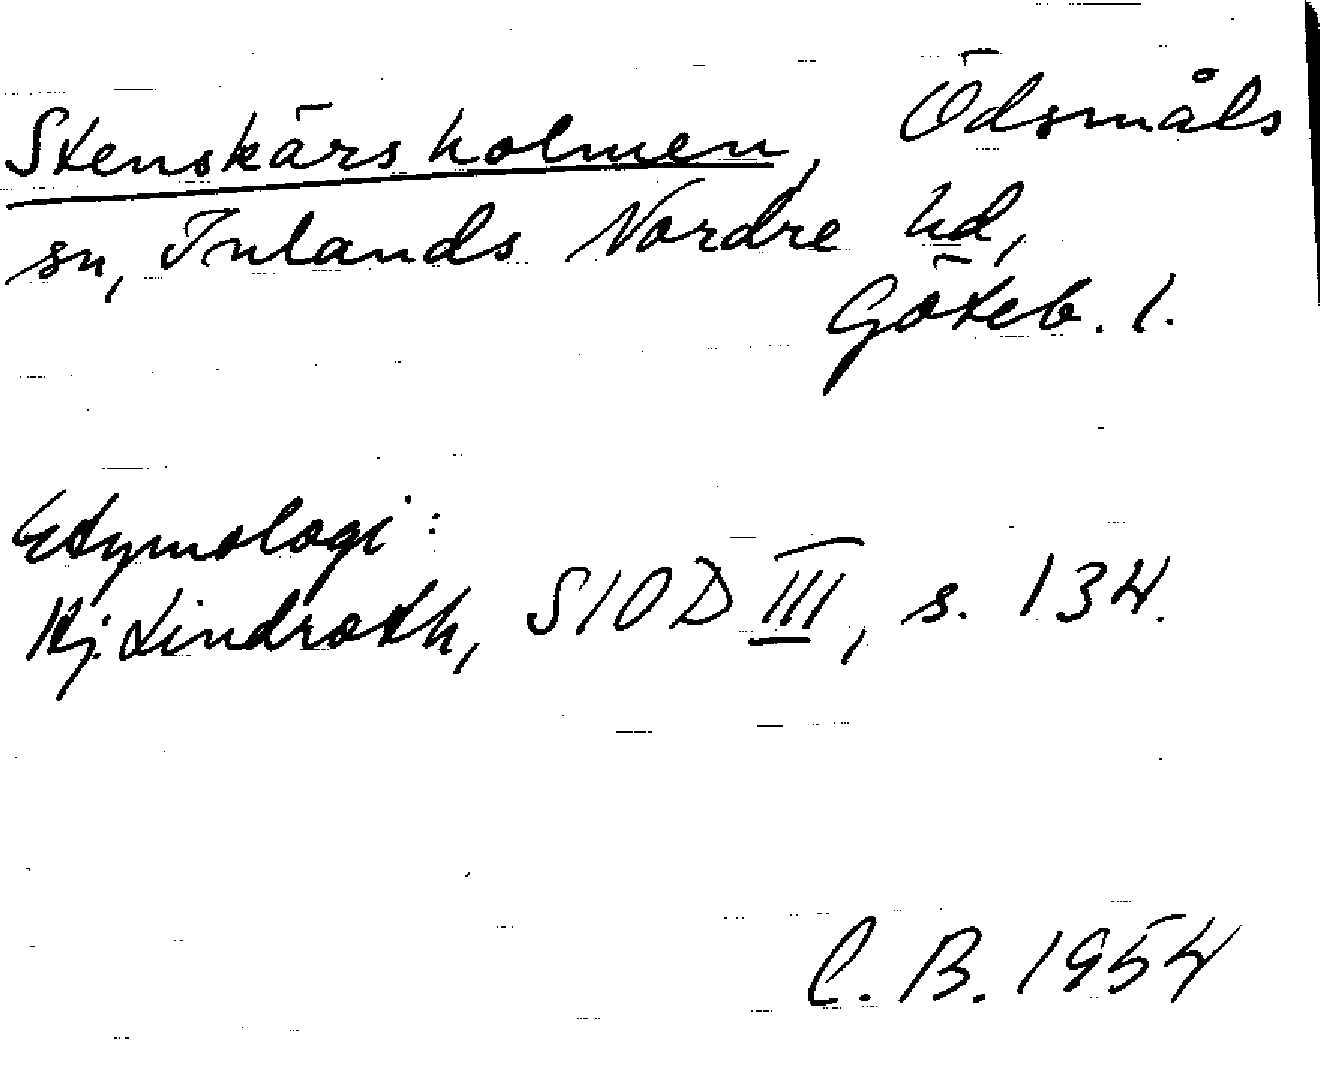 Stenskärsholmen, Ödsmåls
sn, Inlands Nordre hd,
Göteb. l.
Etymologi:
Hj. Lindroth, SIOD III, s. 134.
C. B. 1954